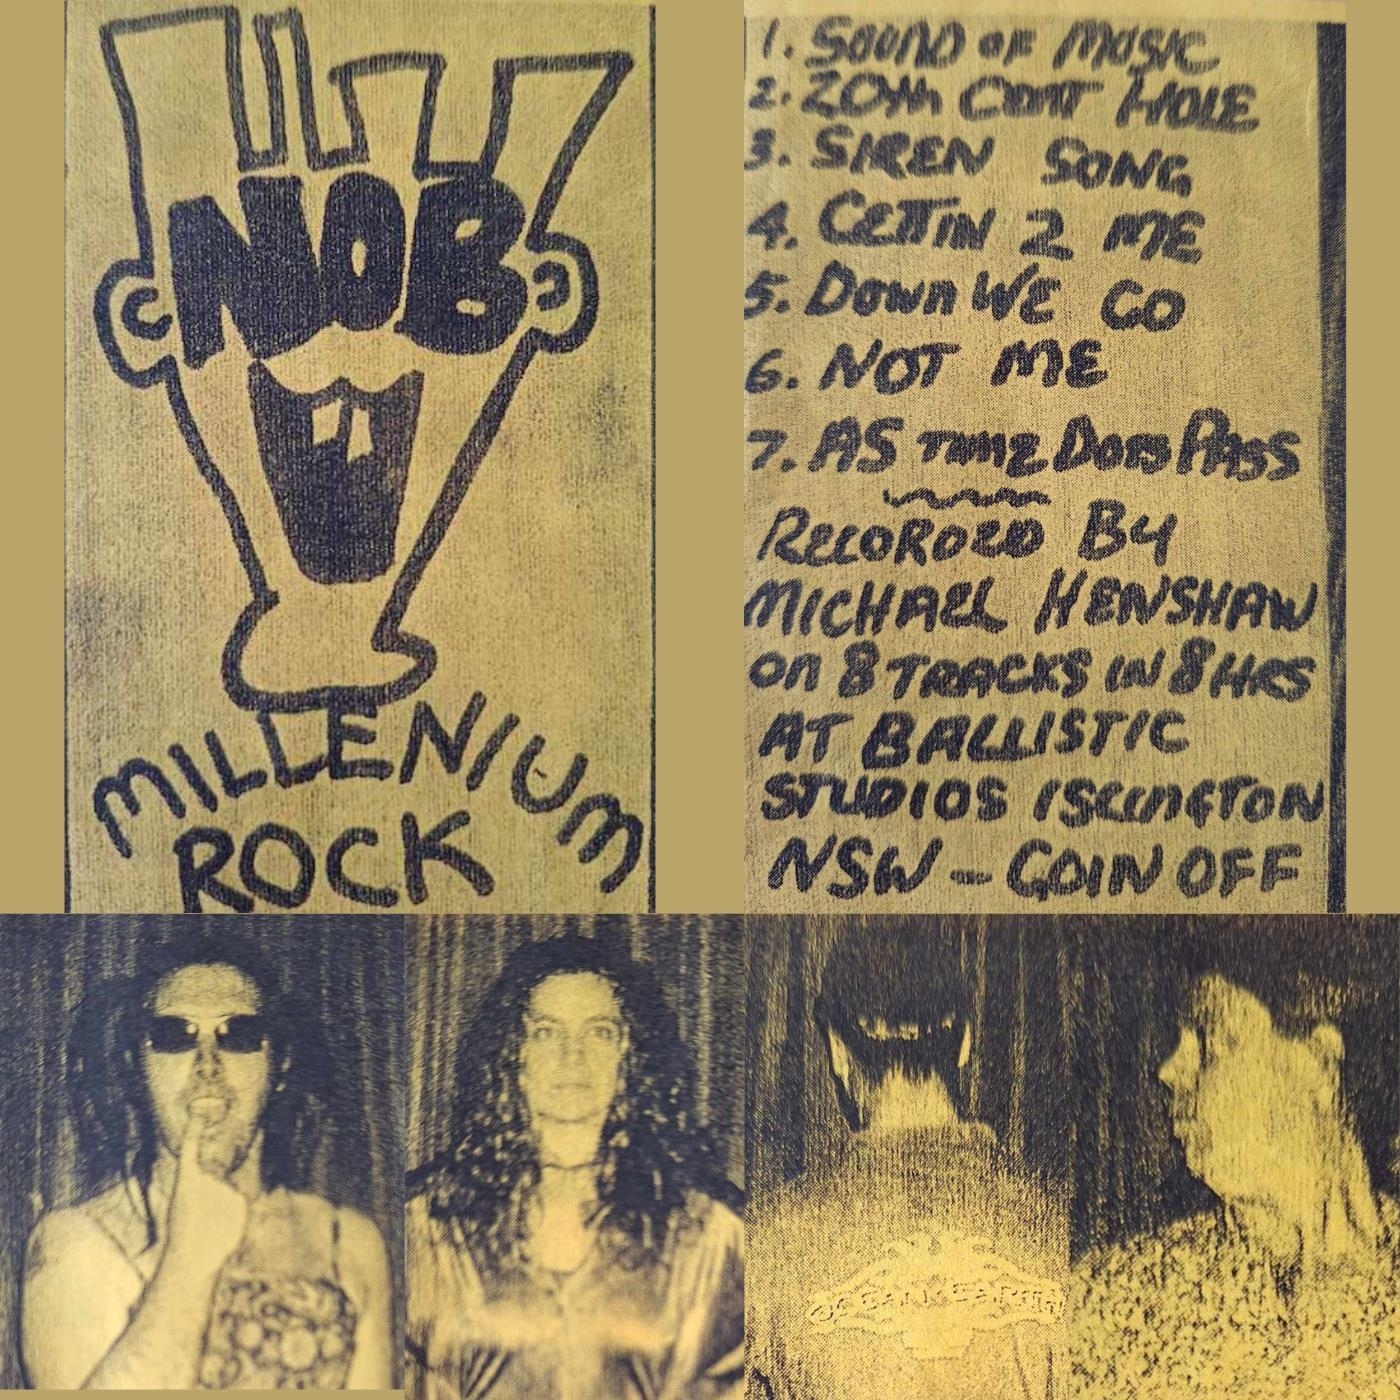 NOB
MILLENIUM
ROCK
1. SOUND OF MUSIC
2. 20th CENT HOLE
3. SIREN SONG
4. GETTIN 2 ME
5. DOWN WE GO
6. NOT ME
7. AS TIME DOES PASS
RECORDED BY
MICHAEL HENSHAW
ON 8 TRACKS IN 8 HRS
AT BALLISTIC
STUDIOS ISLINGTON
NSW - GOIN OFF
OCEAN EARTH